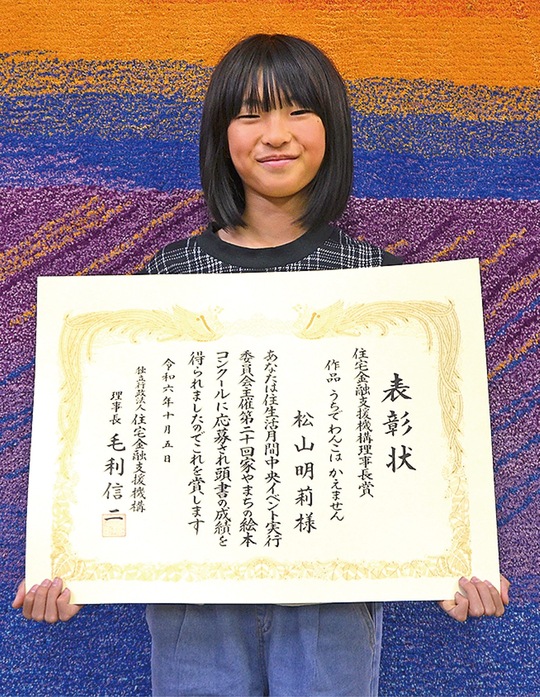 表彰状
住宅金融支援機構理事長賞
作品 うちでわんこはかえません
松山明莉様
あなたは住生活月間中央イベント実行
委員会主催第二十回家やまちの絵本
コンクールに応募され頭書の成績を
得られましたのでこれを賞します
令和六年十月五日
独立行政法人 住宅金融支援機構
理事長 毛利信二